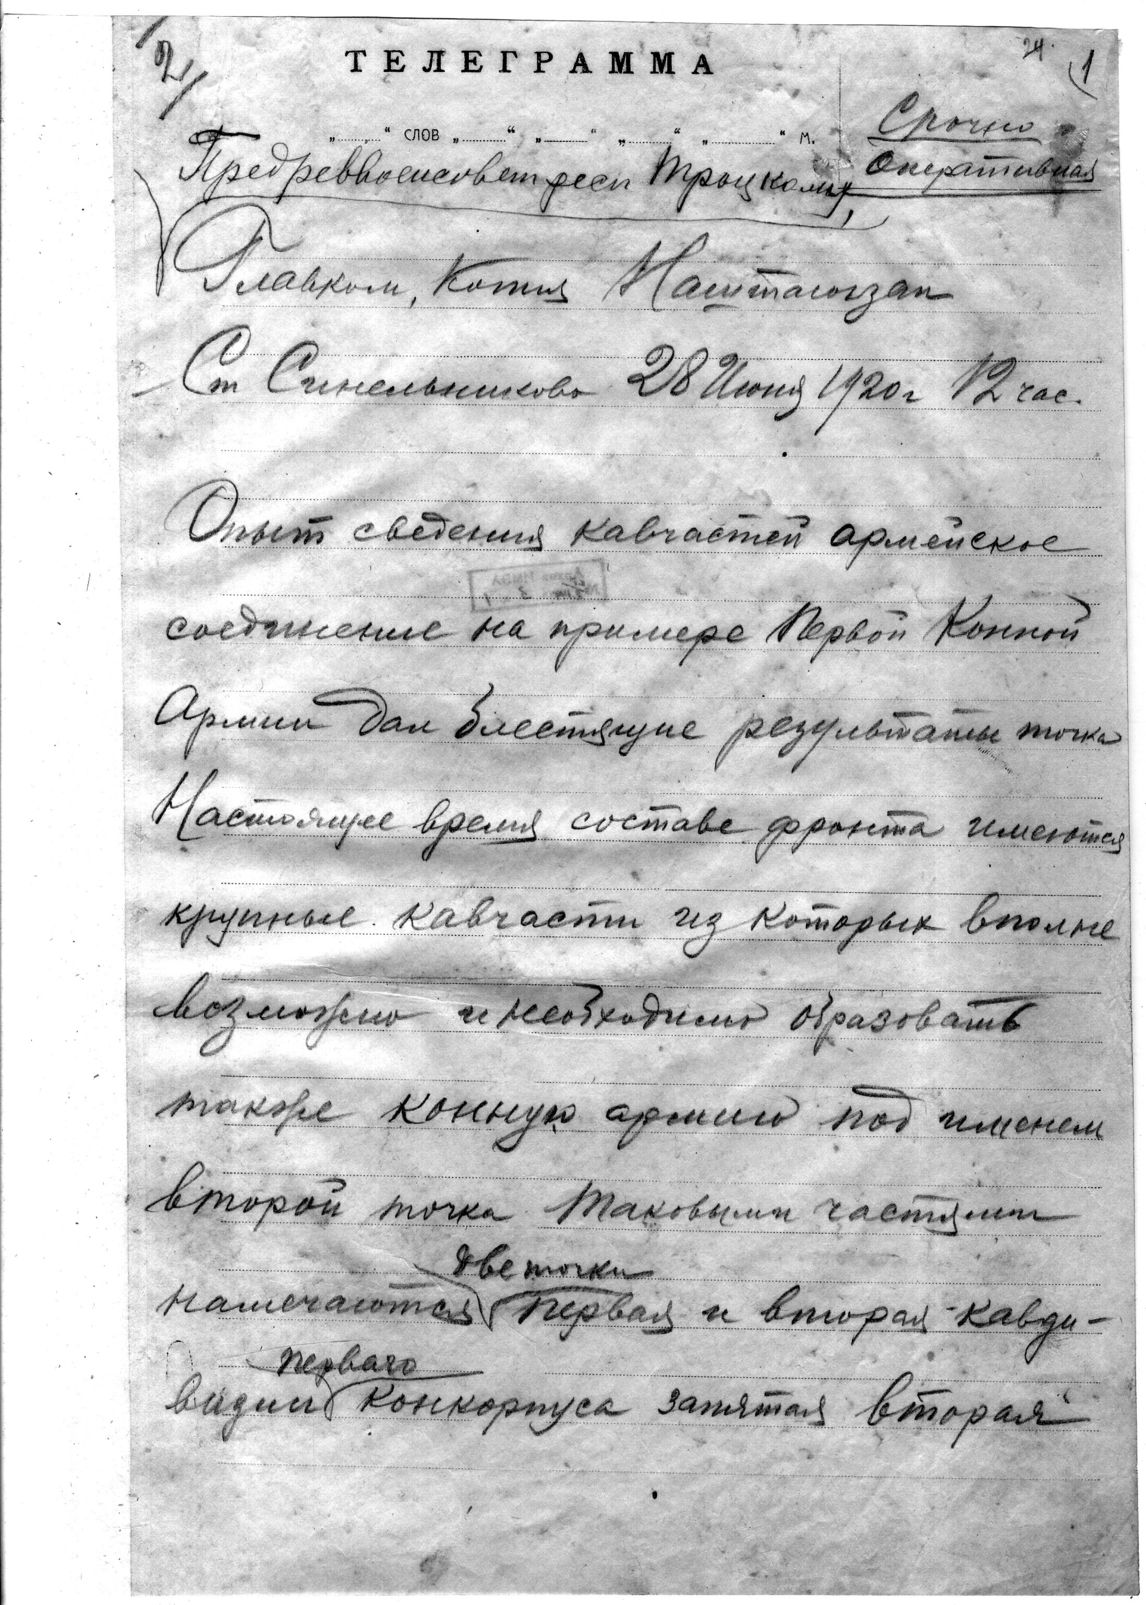 2/
24.
1
ТЕЛЕГРАММА
„ “ слов „ “ „ “ „ “ „ “ м.
Срочно
Оперативная
Предреввоенсовет респ Троцкому,
Главком, Копия Наштаюгзап
Ст Синельниково 28 Июня 1920 г 12 час.
Опыт сведения кавчастей армейское
соединение на примере Первой Конной
Армии дал блестящие результаты точка
Настоящее время составе фронта имеются
крупные кавчасти из которых вполне
возможно и необходимо образовать
также конную армию под именем
второй точка Таковыми частями
две точки
намечаются первая и вторая кавди-
первого
визии конкорпуса запятая вторая